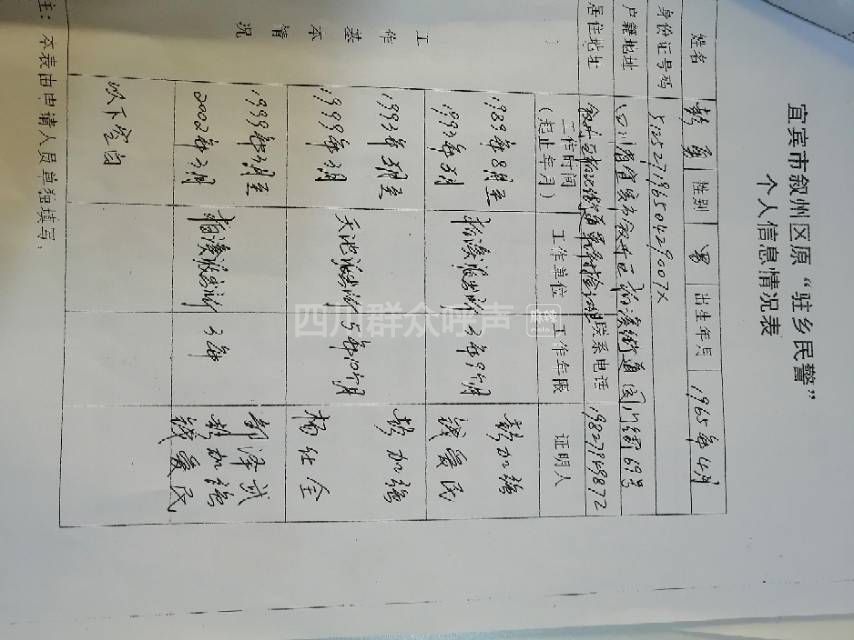 宜宾市叙州区原“驻乡民警”
个人信息情况表
姓名 彭 性别 男 出生年月 1965年4月
身份证号码 51252719650429007X
户籍地址 四川省宜宾市叙州区柏溪街道 街 号
居住地址 叙州区柏溪街道 联系电话 19827949872
工作基本情况
工作时间
(起止年月)
工作单位 工作年限 证明人
1989年8月至 柏溪派出所 3年9个月 彭加强
1993年5月 钱爱民
1993年5月至 天池派出所 5年10个月 彭加强
1999年3月 杨仕全
1999年3月至 柏溪派出所 3年 郭泽武
2002年3月 彭加强
钱爱民
以下空白
注：本表由申请人员单独填写.
四川群众呼声